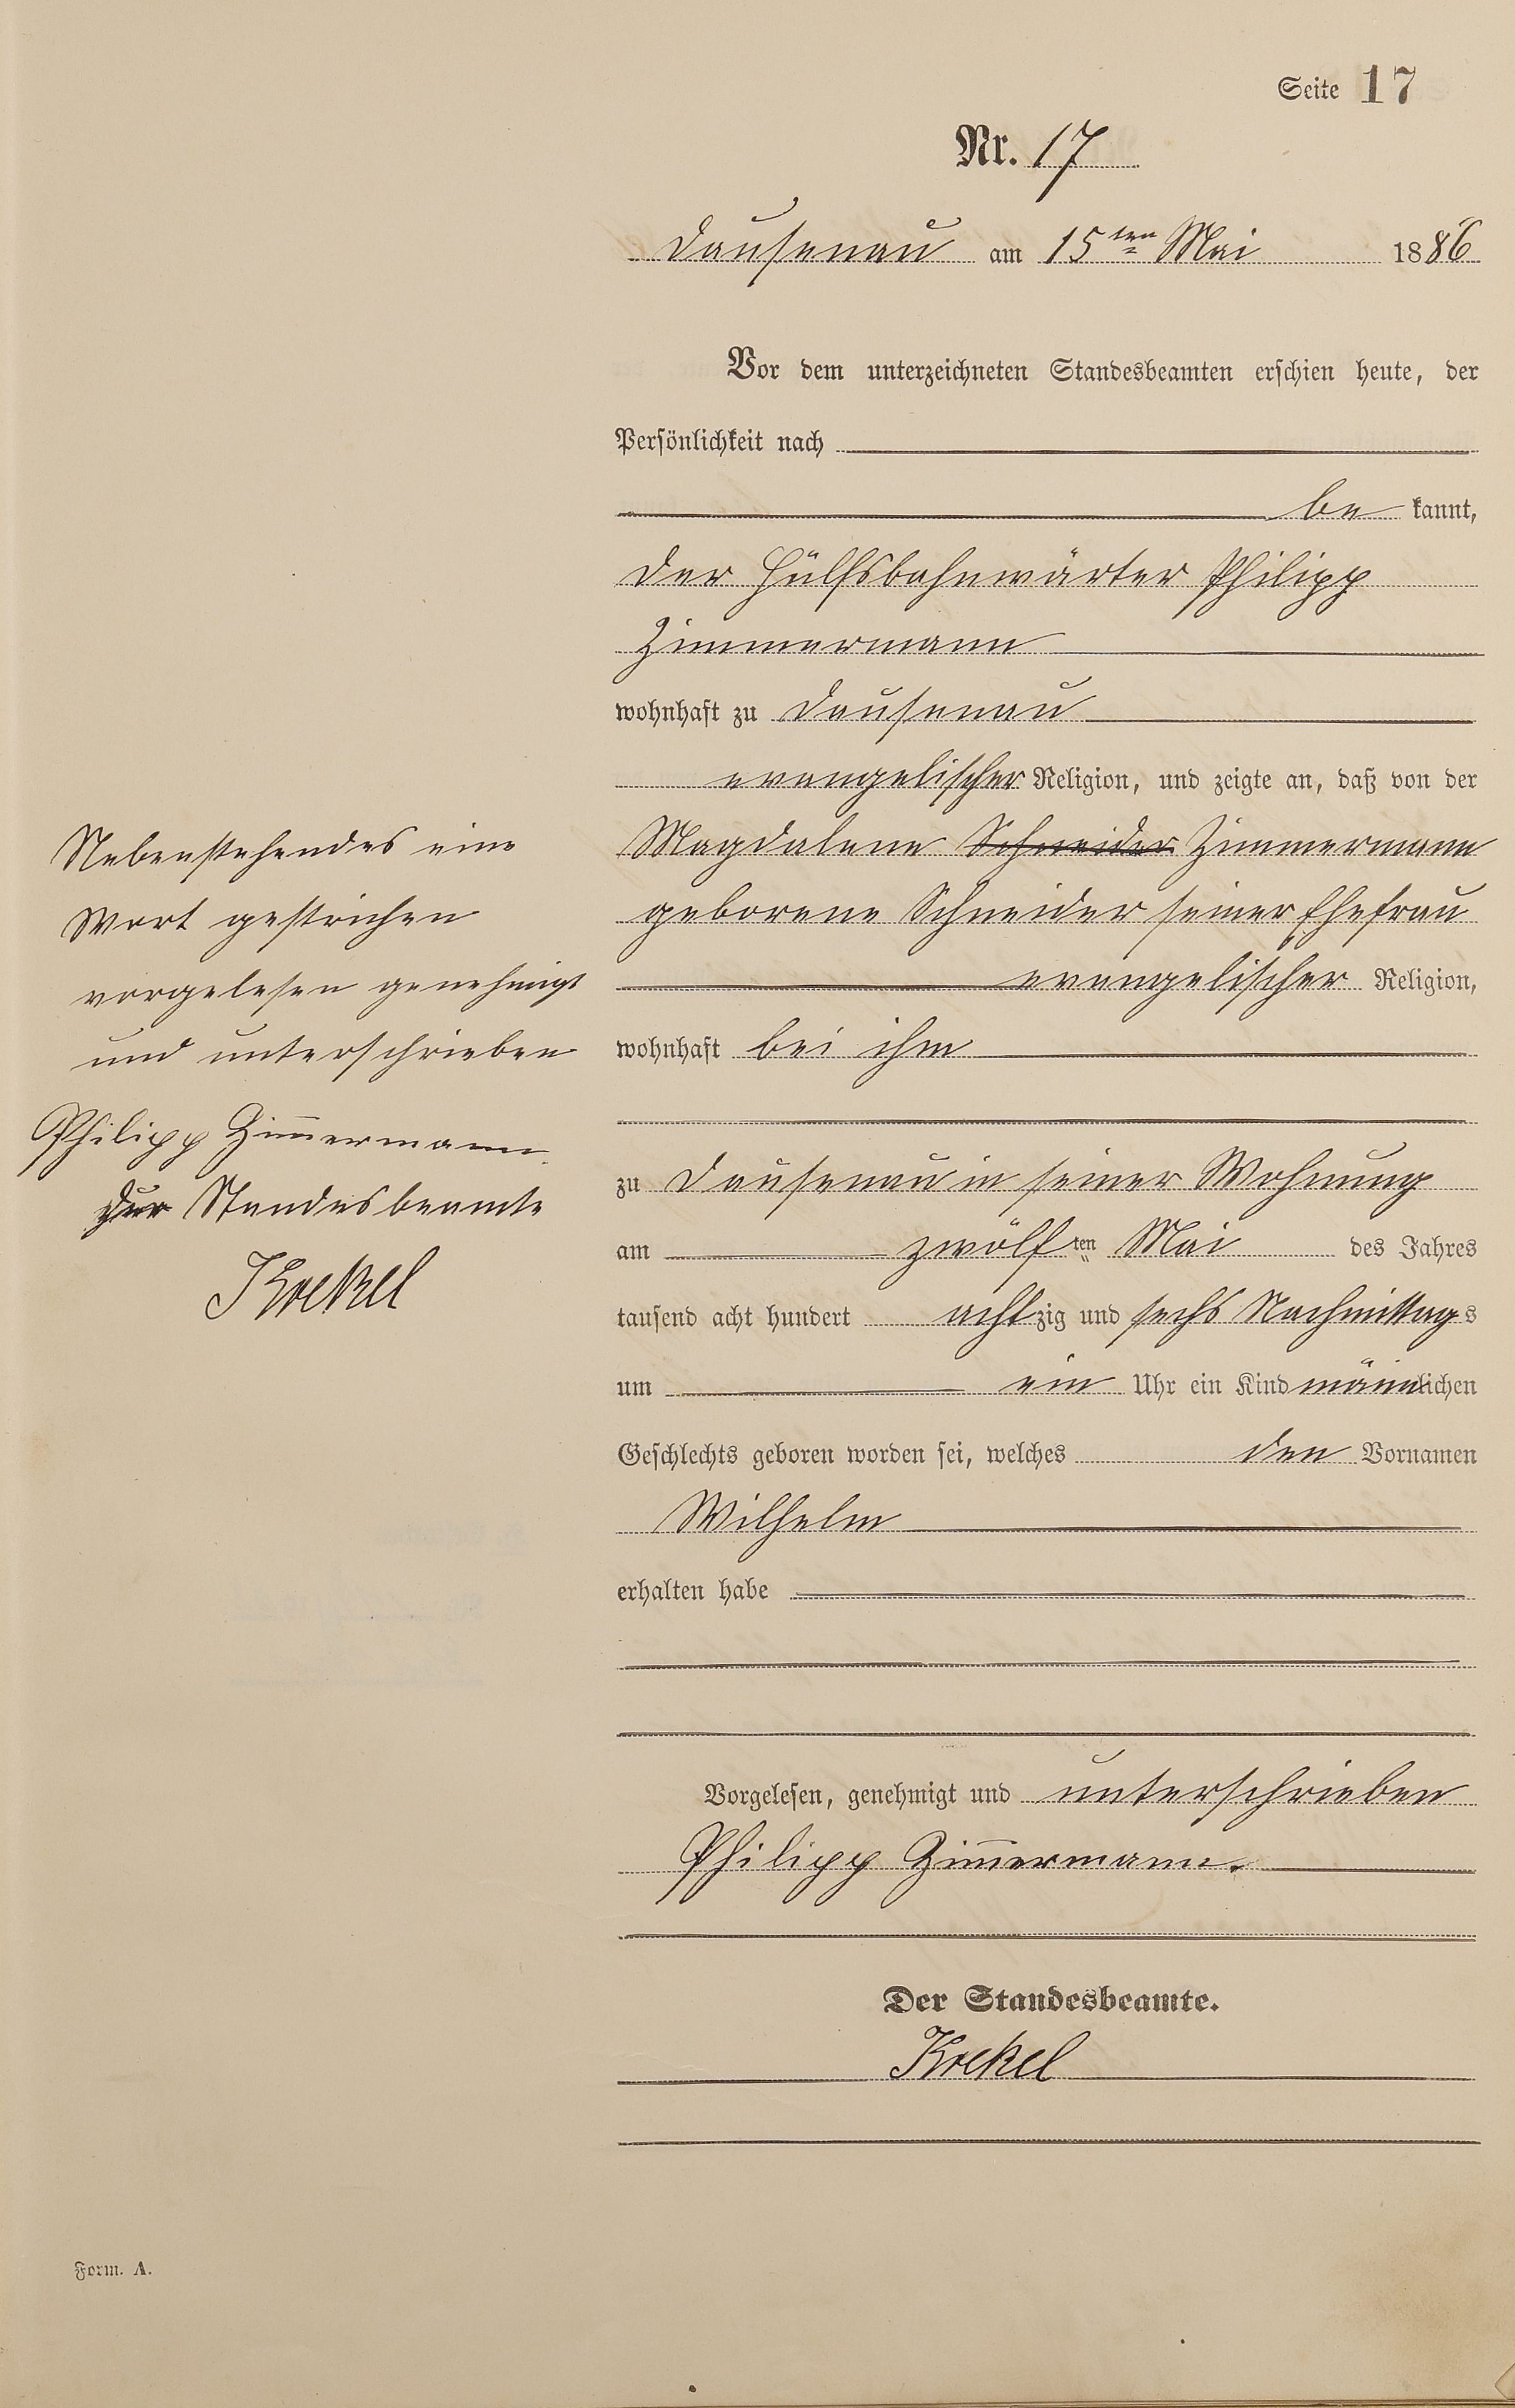 Seite 17
Nr. 17
Dausenau am 15ten Mai 1886
Vor dem unterzeichneten Standesbeamten erschien heute, der
Persönlichkeit nach
be kannt,
der Hülfsbahnwärter Philipp
Zimmermann
wohnhaft zu Dausenau
evangelischer Religion, und zeigte an, daß von der
Magdalene Schneider Zimmermann
geborene Schneider seiner Ehefrau
evangelischer Religion,
wohnhaft bei ihm
zu Dausenau in seiner Wohnung
am zwölf ten Mai des Jahres
tausend acht hundert achtzig und sechs Nachmittags
um ein Uhr ein Kind männlichen
Geschlechts geboren worden sei, welches den Vornamen
Wilhelm
erhalten habe
Vorgelesen, genehmigt und unterschrieben
Philipp Zimmermann.
Der Standesbeamte.
Krekel
Nebenstehendes eine
Wort gestrichen
vorgelesen genehmigt
und unterschrieben
Philipp Zimmermann.
Der Standesbeamte
Krekel
Form. A.